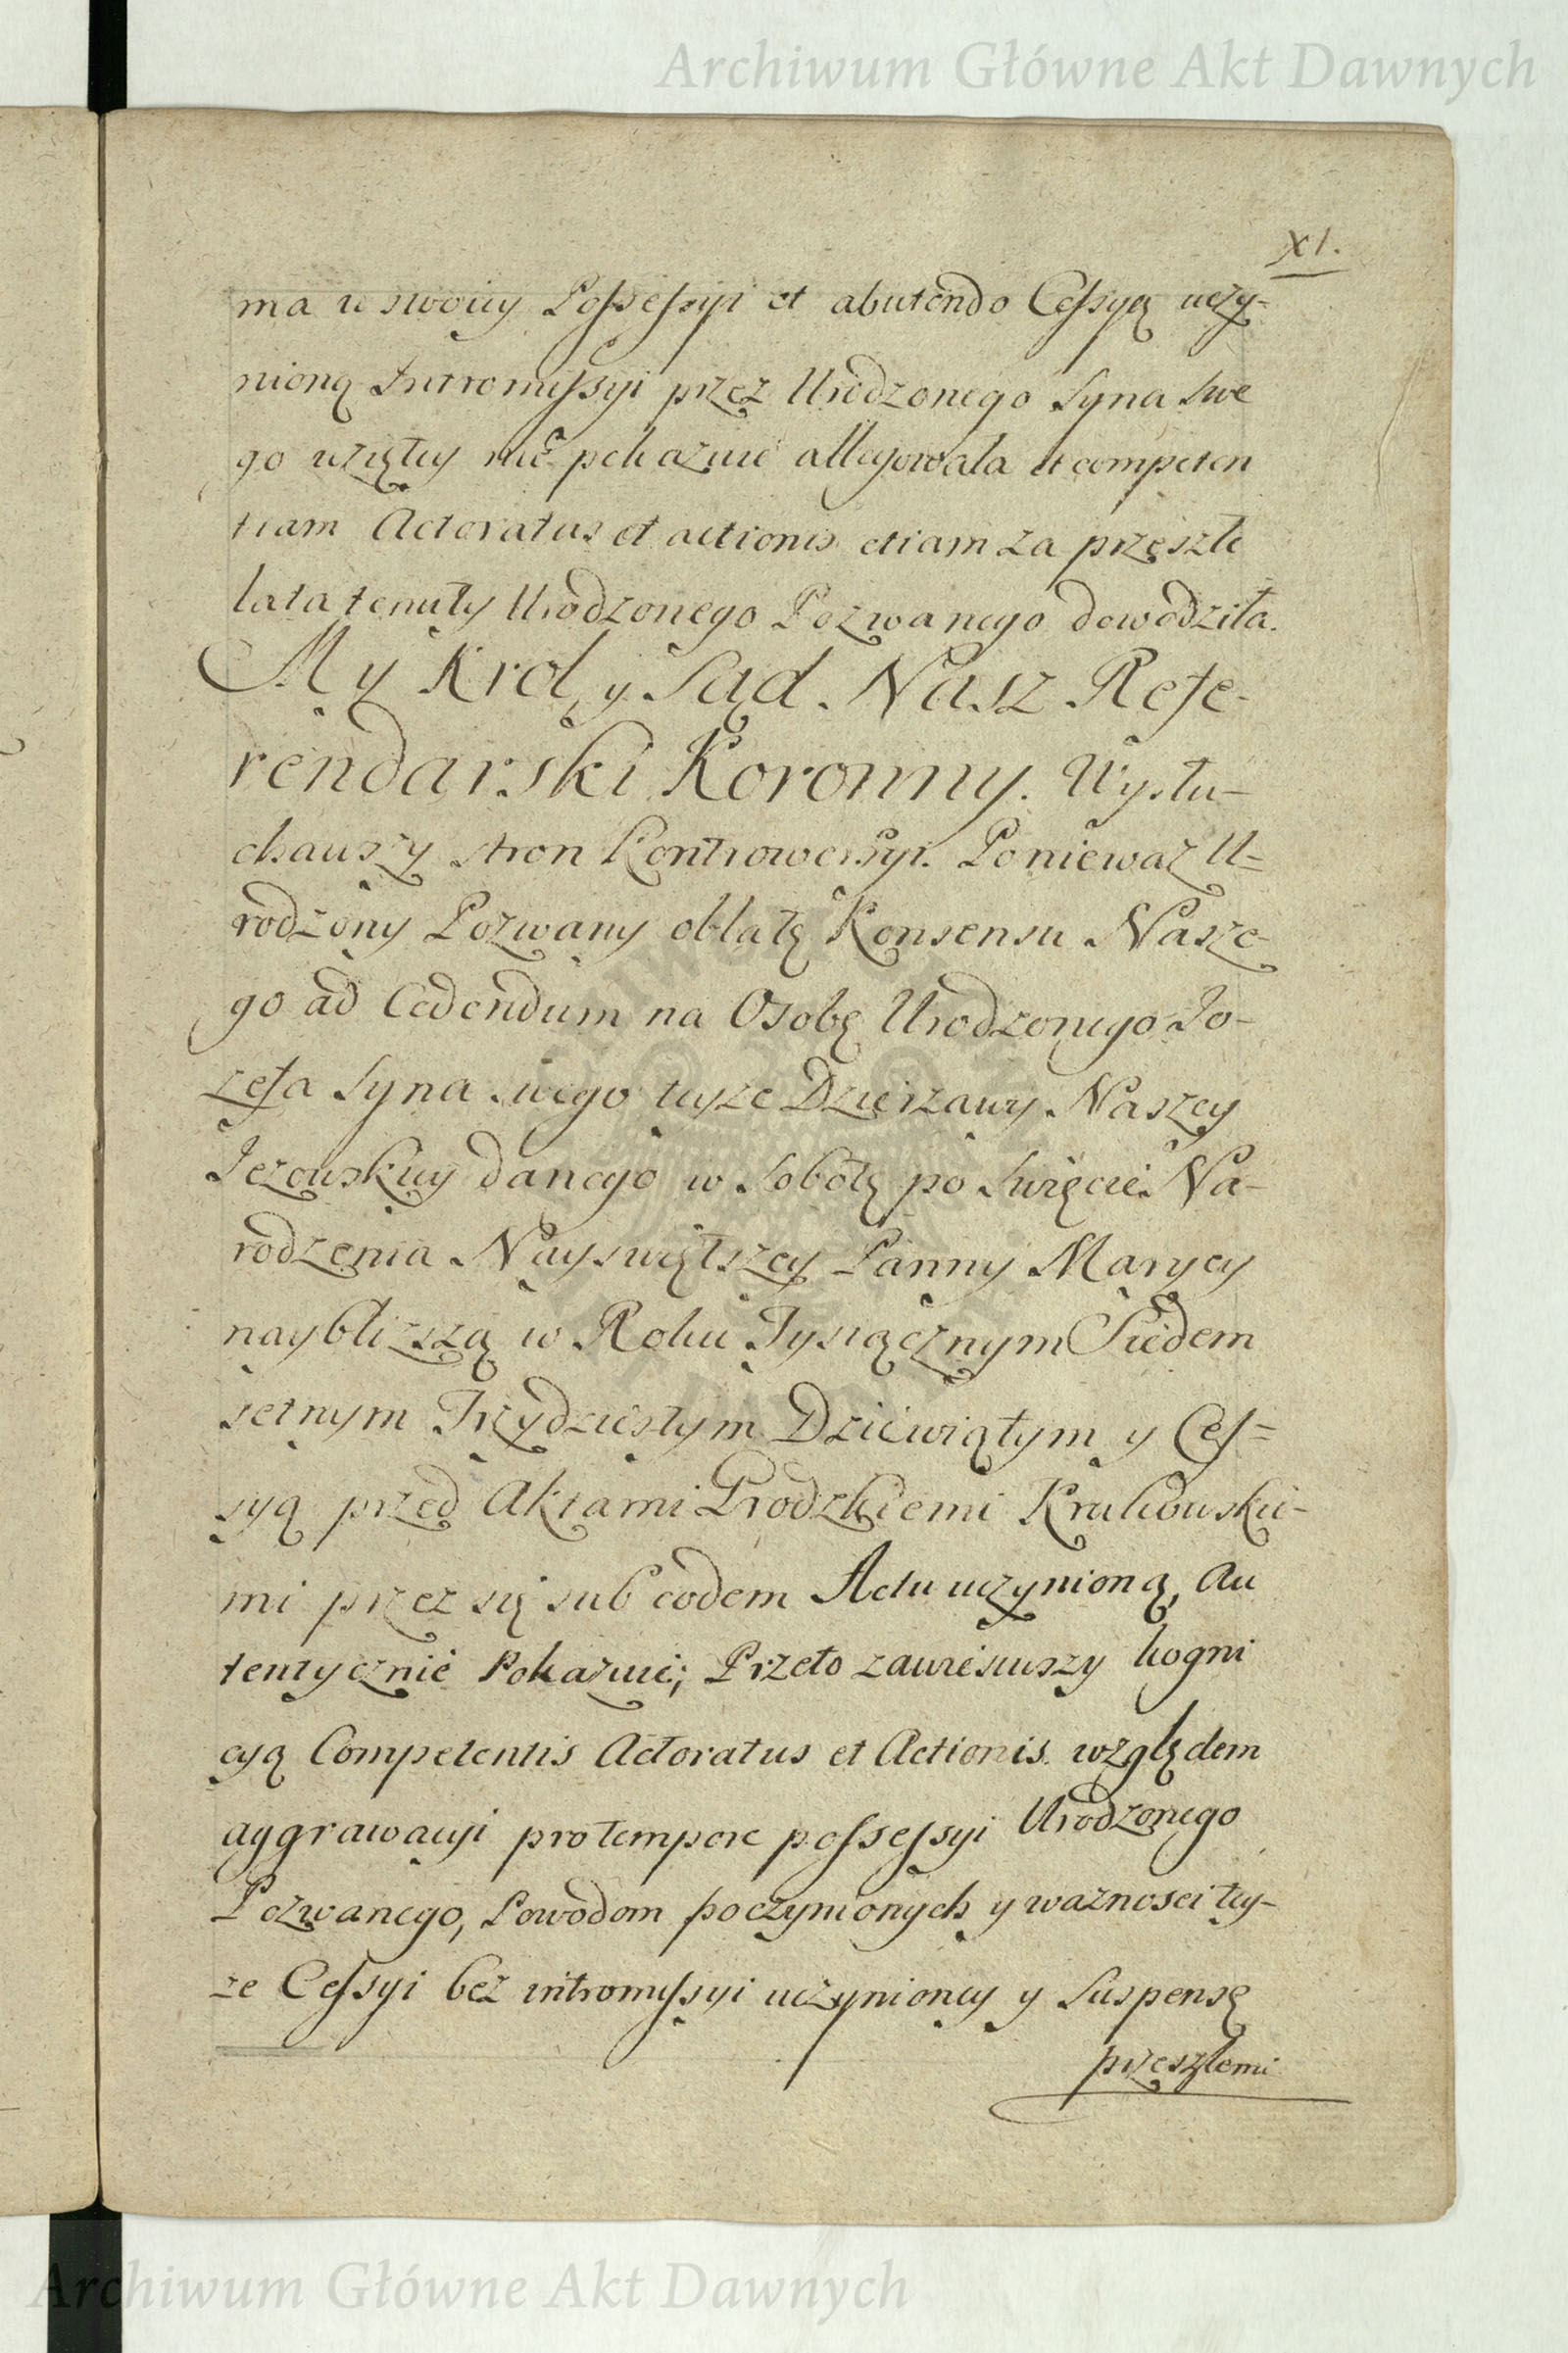 Archiwum Główne Akt Dawnych
XI.
ma w swoiey Possessyi et abutendo Cessyą uczy-
nioną Intromissyi przez Urodzonego Syna swe
go wziętey nie pokazuie allegowała et competen
tiam Actoratus et actionis etiam za przeszłe
lata tenuty Urodzonego Pozwanego dowodziła.
My Krol y Sąd Nasz Refe-
rendarski Koronny. Wysłu-
chawszy stron Kontrowersyi. Ponieważ U-
rodzony Pozwany oblatę Konsensu Nasze-
go ad Cedendum na Osobę Urodzonego Jo-
zefa Syna swego teyze Dzierzawy Naszey
Jezowskiey danego w Sobotę po Swięcie Na-
rodzenia Nayswiętszey Panny Maryey
naybliższą w Roku Tysiącznym Siedem
setnym Trzydziestym Dziewiątym y Ces-
syą przed Aktami Grodzkiemi Krakowskie-
mi przez się sub eodem Actu uczynioną, Au
tentycznie Pokazuie; Przeto zawiesiwszy kogni
cyą Competentis Actoratus et Actionis względem
aggrawacyi pro tempore possessyi Urodzonego
Pozwanego, Powodom poczynionych y ważnosci tey-
ze Cessyi bez intromissyi uczynioney y Suspensę
przeszłemi
Archiwum Główne Akt Dawnych